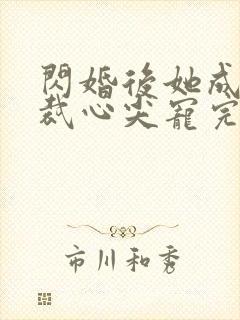 閃婚後她成
裁心尖寵完
市川和秀